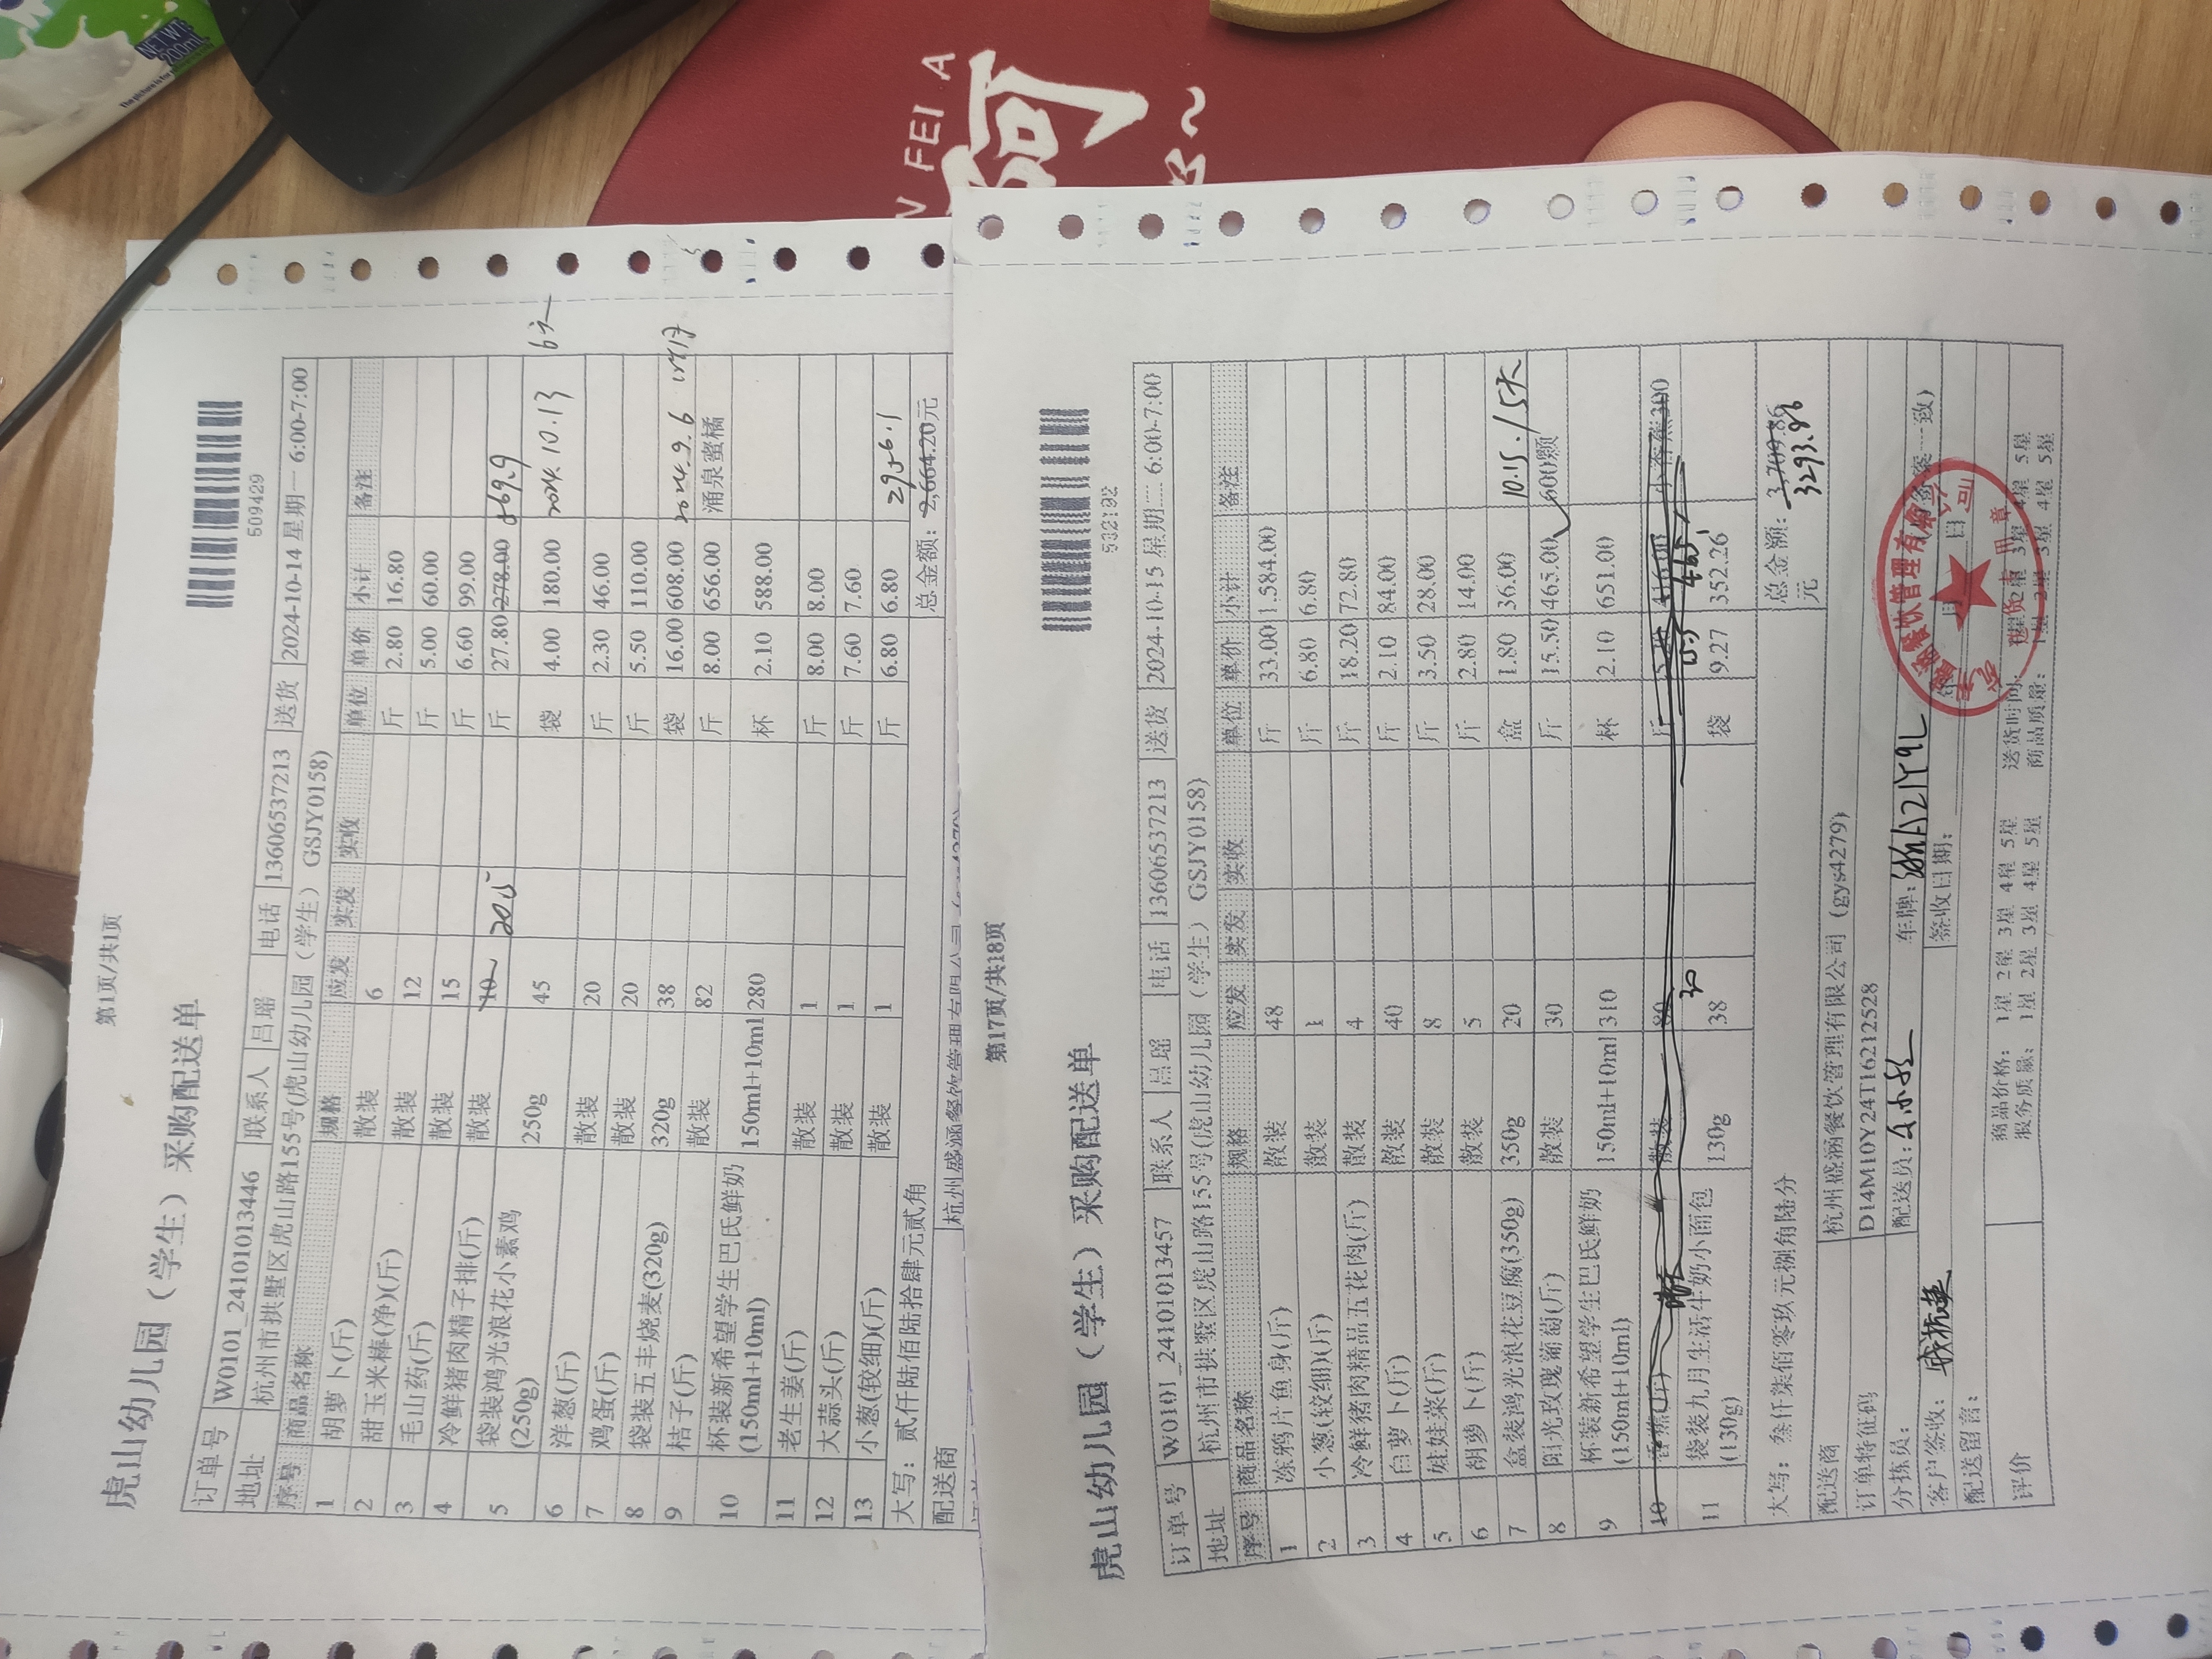 NET WT
200mL
W FEI A
阿
第1页/共1页
虎山幼儿园（学生）采购配送单
509429
订单号 W0101_24101013446 联系人 吕瑶 电话 13606537213 送货 2024-10-14 星期一 6:00-7:00
地址 杭州市拱墅区虎山路155号(虎山幼儿园（学生）GSJY0158)
序号 商品名称 规格 应发 实发 实收 单位 单价 小计 备注
1 胡萝卜(斤) 散装 6 斤 2.80 16.80
2 甜玉米棒(净)(斤) 散装 12 斤 5.00 60.00
3 毛山药(斤) 散装 15 斤 6.60 99.00
4 冷鲜猪肉精子排(斤) 散装 10 20.5 斤 27.80 278.00 569.9
5 袋装鸿光浪花小素鸡 250g 45 袋 4.00 180.00 2024.10.13 6天
(250g)
6 洋葱(斤) 散装 20 斤 2.30 46.00
7 鸡蛋(斤) 散装 20 斤 5.50 110.00
8 袋装五丰烧麦(320g) 320g 38 袋 16.00 608.00 2024.9.6
9 桔子(斤) 散装 82 斤 8.00 656.00 涌泉蜜橘
10 杯装新希望学生巴氏鲜奶 150ml+10ml 280 杯 2.10 588.00
(150ml+10ml)
11 老生姜(斤) 散装 1 斤 8.00 8.00
12 大蒜头(斤) 散装 1 斤 7.60 7.60
13 小葱(较细)(斤) 散装 1 斤 6.80 6.80 2956.1
大写：贰仟陆佰陆拾肆元贰角 总金额：2,664.20元
配送商 杭州盛涵餐饮管理有限公司
第17页/共18页
虎山幼儿园（学生）采购配送单
532192
订单号 W0101_24101013457 联系人 吕瑶 电话 13606537213 送货 2024-10-15 星期二 6:00-7:00
地址 杭州市拱墅区虎山路155号(虎山幼儿园（学生）GSJY0158)
序号 商品名称 规格 应发 实发 实收 单位 单价 小计 备注
1 冻鸦片鱼身(斤) 散装 48 斤 33.00 1,584.00
2 小葱(较细)(斤) 散装 1 斤 6.80 6.80
3 冷鲜猪肉精品五花肉(斤) 散装 4 斤 18.20 72.80
4 白萝卜(斤) 散装 40 斤 2.10 84.00
5 娃娃菜(斤) 散装 8 斤 3.50 28.00
6 胡萝卜(斤) 散装 5 斤 2.80 14.00
7 盒装鸿光浪花豆腐(350g) 350g 20 盒 1.80 36.00 10.15.15天
8 阳光玫瑰葡萄(斤) 散装 30 斤 15.50 465.00 600颗
9 杯装新希望学生巴氏鲜奶 150ml+10ml 310 杯 2.10 651.00
(150ml+10ml)
10 香蕉(斤) 散装 80 斤 416.00 小香蕉300
30 15.5 465
11 袋装九月生活牛奶小面包 130g 38 袋 9.27 352.26
(130g)
大写：叁仟柒佰零玖元捌角陆分 总金额：3,709.86
元 3293.86
配送商 杭州盛涵餐饮管理有限公司（gys4279)
订单特征码 D14M10Y24T16212528
分拣员： 配送员： 车牌：浙A21Y9L
客户签收： 签收日期： 年 月 日
配送留言：
评价 商品价格： 1星 2星 3星 4星 5星 送货时间： 1星 2星 3星 4星 5星
服务质量： 1星 2星 3星 4星 5星 商品质量： 1星 2星 3星 4星 5星